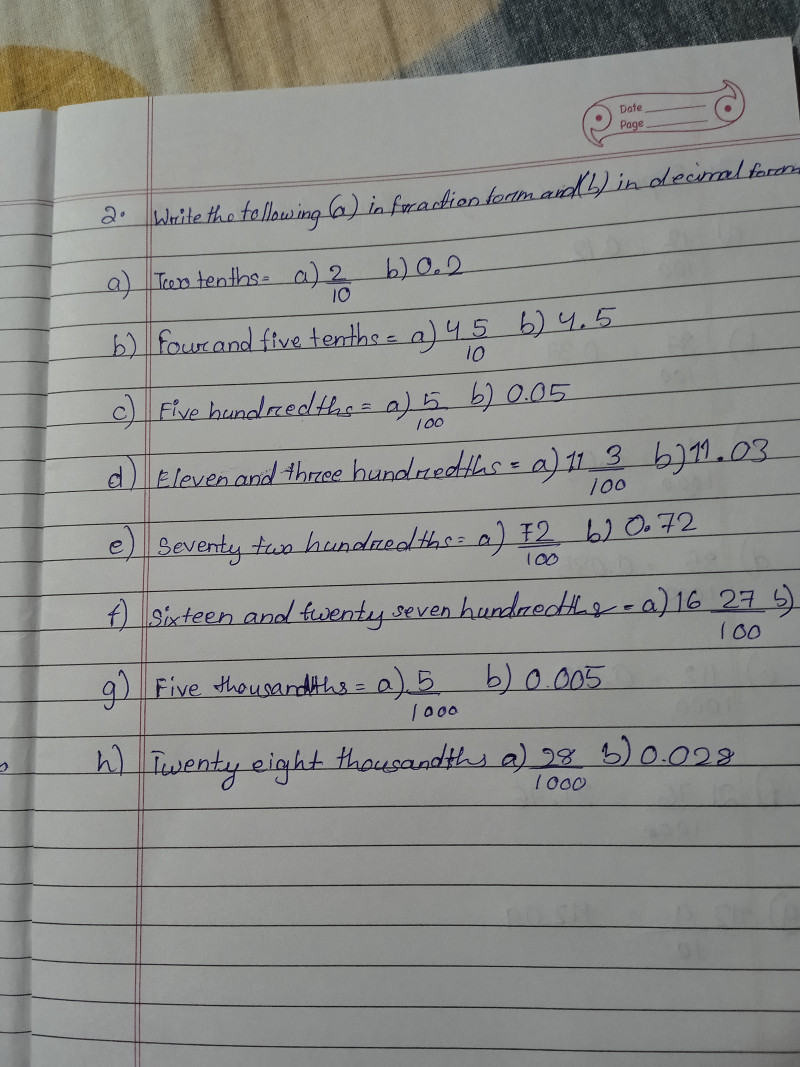 Date
Page
2. Write the following (a) in fraction form and (b) in decimal form
a) Two tenths = a) 2/10 b) 0.2
b) Four and five tenths = a) 4 5/10 b) 4.5
c) Five hundredths = a) 5/100 b) 0.05
d) Eleven and three hundredths = a) 11 3/100 b) 11.03
e) Seventy two hundredths = a) 72/100 b) 0.72
f) Sixteen and twenty seven hundredths = a) 16 27/100 b)
g) Five thousandths = a) 5/1000 b) 0.005
h) Twenty eight thousandths a) 28/1000 b) 0.028